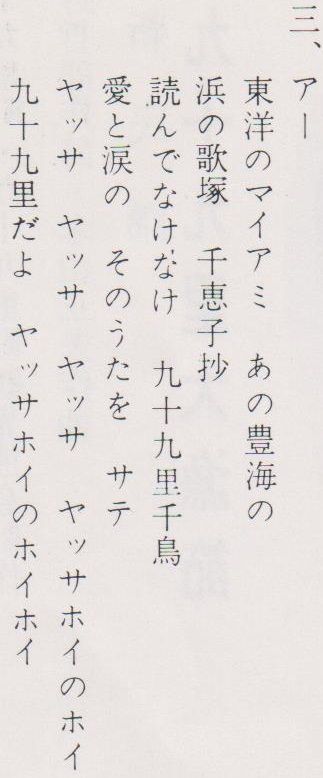 三、アー
東洋のマイアミ　あの豊海の
浜の歌塚　千恵子抄
読んでなけなけ　九十九里千鳥
愛と涙の　そのうたを　サテ
ヤッサ　ヤッサ　ヤッサ　ヤッサホイのホイ
九十九里だよ　ヤッサホイのホイホイ